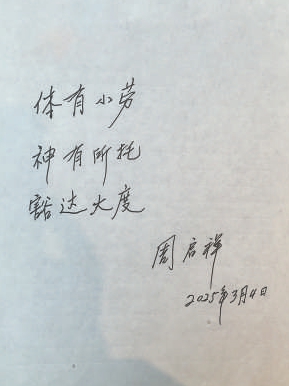 体有小劳
神有所托
豁达大度
周启祥
2025年3月4日